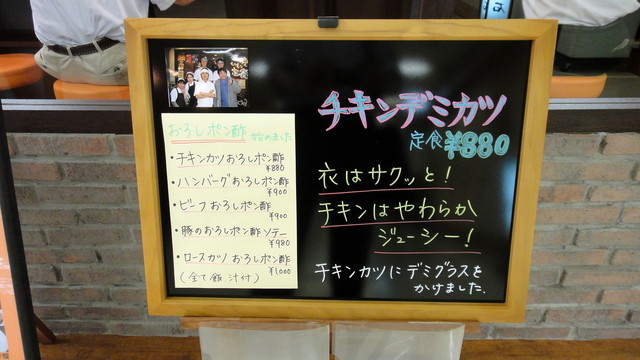 おろしポン酢 始めました
・チキンカツおろしポン酢
¥880
・ハンバーグおろしポン酢
¥900
・ビーフおろしポン酢
¥900
・豚のおろしポン酢ソテー
¥980
・ロースカツおろしポン酢
¥1000
(全て飯汁付)
チキンデミカツ
定食¥880
衣はサクッと!
チキンはやわらか
ジューシー!
チキンカツにデミグラスを
かけました.